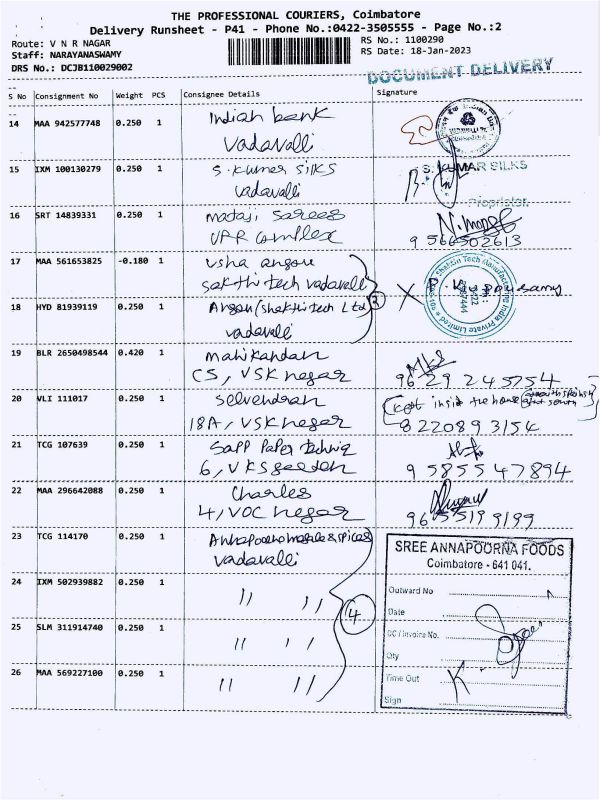 THE PROFESSIONAL COURIERS, Coimbatore
Delivery Runsheet - P41 - Phone No.:0422-3505555 - Page No.:2
Route: V N R NAGAR
RS No.: 1100290
Staff: NARAYANASWAMY
RS Date: 18-Jan-2023
DRS No.: DCJB110029002
DOCUMENT DELIVERY
S No Consignment No Weight PCS Consignee Details Signature
14 MAA 942577748 0.250 1 Indian bank
vadavalli
15 IXM 100130279 0.250 1 S. Kumar SILKS
vadavalli
S. KUMAR SILKS
Proprietor
16 SRT 14839331 0.250 1 mataji sarees
complex
9566502613
17 MAA 561653825 -0.180 1 usha angou
sakthi tech vadavalli
18 HYD 81939119 0.250 1 (shakthi tech Ltd
vadavalli
19 BLR 2650498544 0.420 1 manikandan
CS, VSK nagar
96 29 245754
20 VLI 111017 0.250 1 Selvendran
18A, VSK nagar
(Kept inside the home
8220893154
21 TCG 107639 0.250 1 Sapp Paper
6, VKS garden
9 5855 47894
22 MAA 296642088 0.250 1 Charles
4, VOC nagar
23 TCG 114170 0.250 1 spices
vadavalli
24 IXM 502939882 0.250 1 〃 〃
4
25 SLM 311914740 0.250 1 〃 〃
26 MAA 569227100 0.250 1 〃 〃
SREE ANNAPOORNA FOODS
Coimbatore - 641 041.
Outward No
Date
DC / Invoice No.
Qty
Time Out
Sign